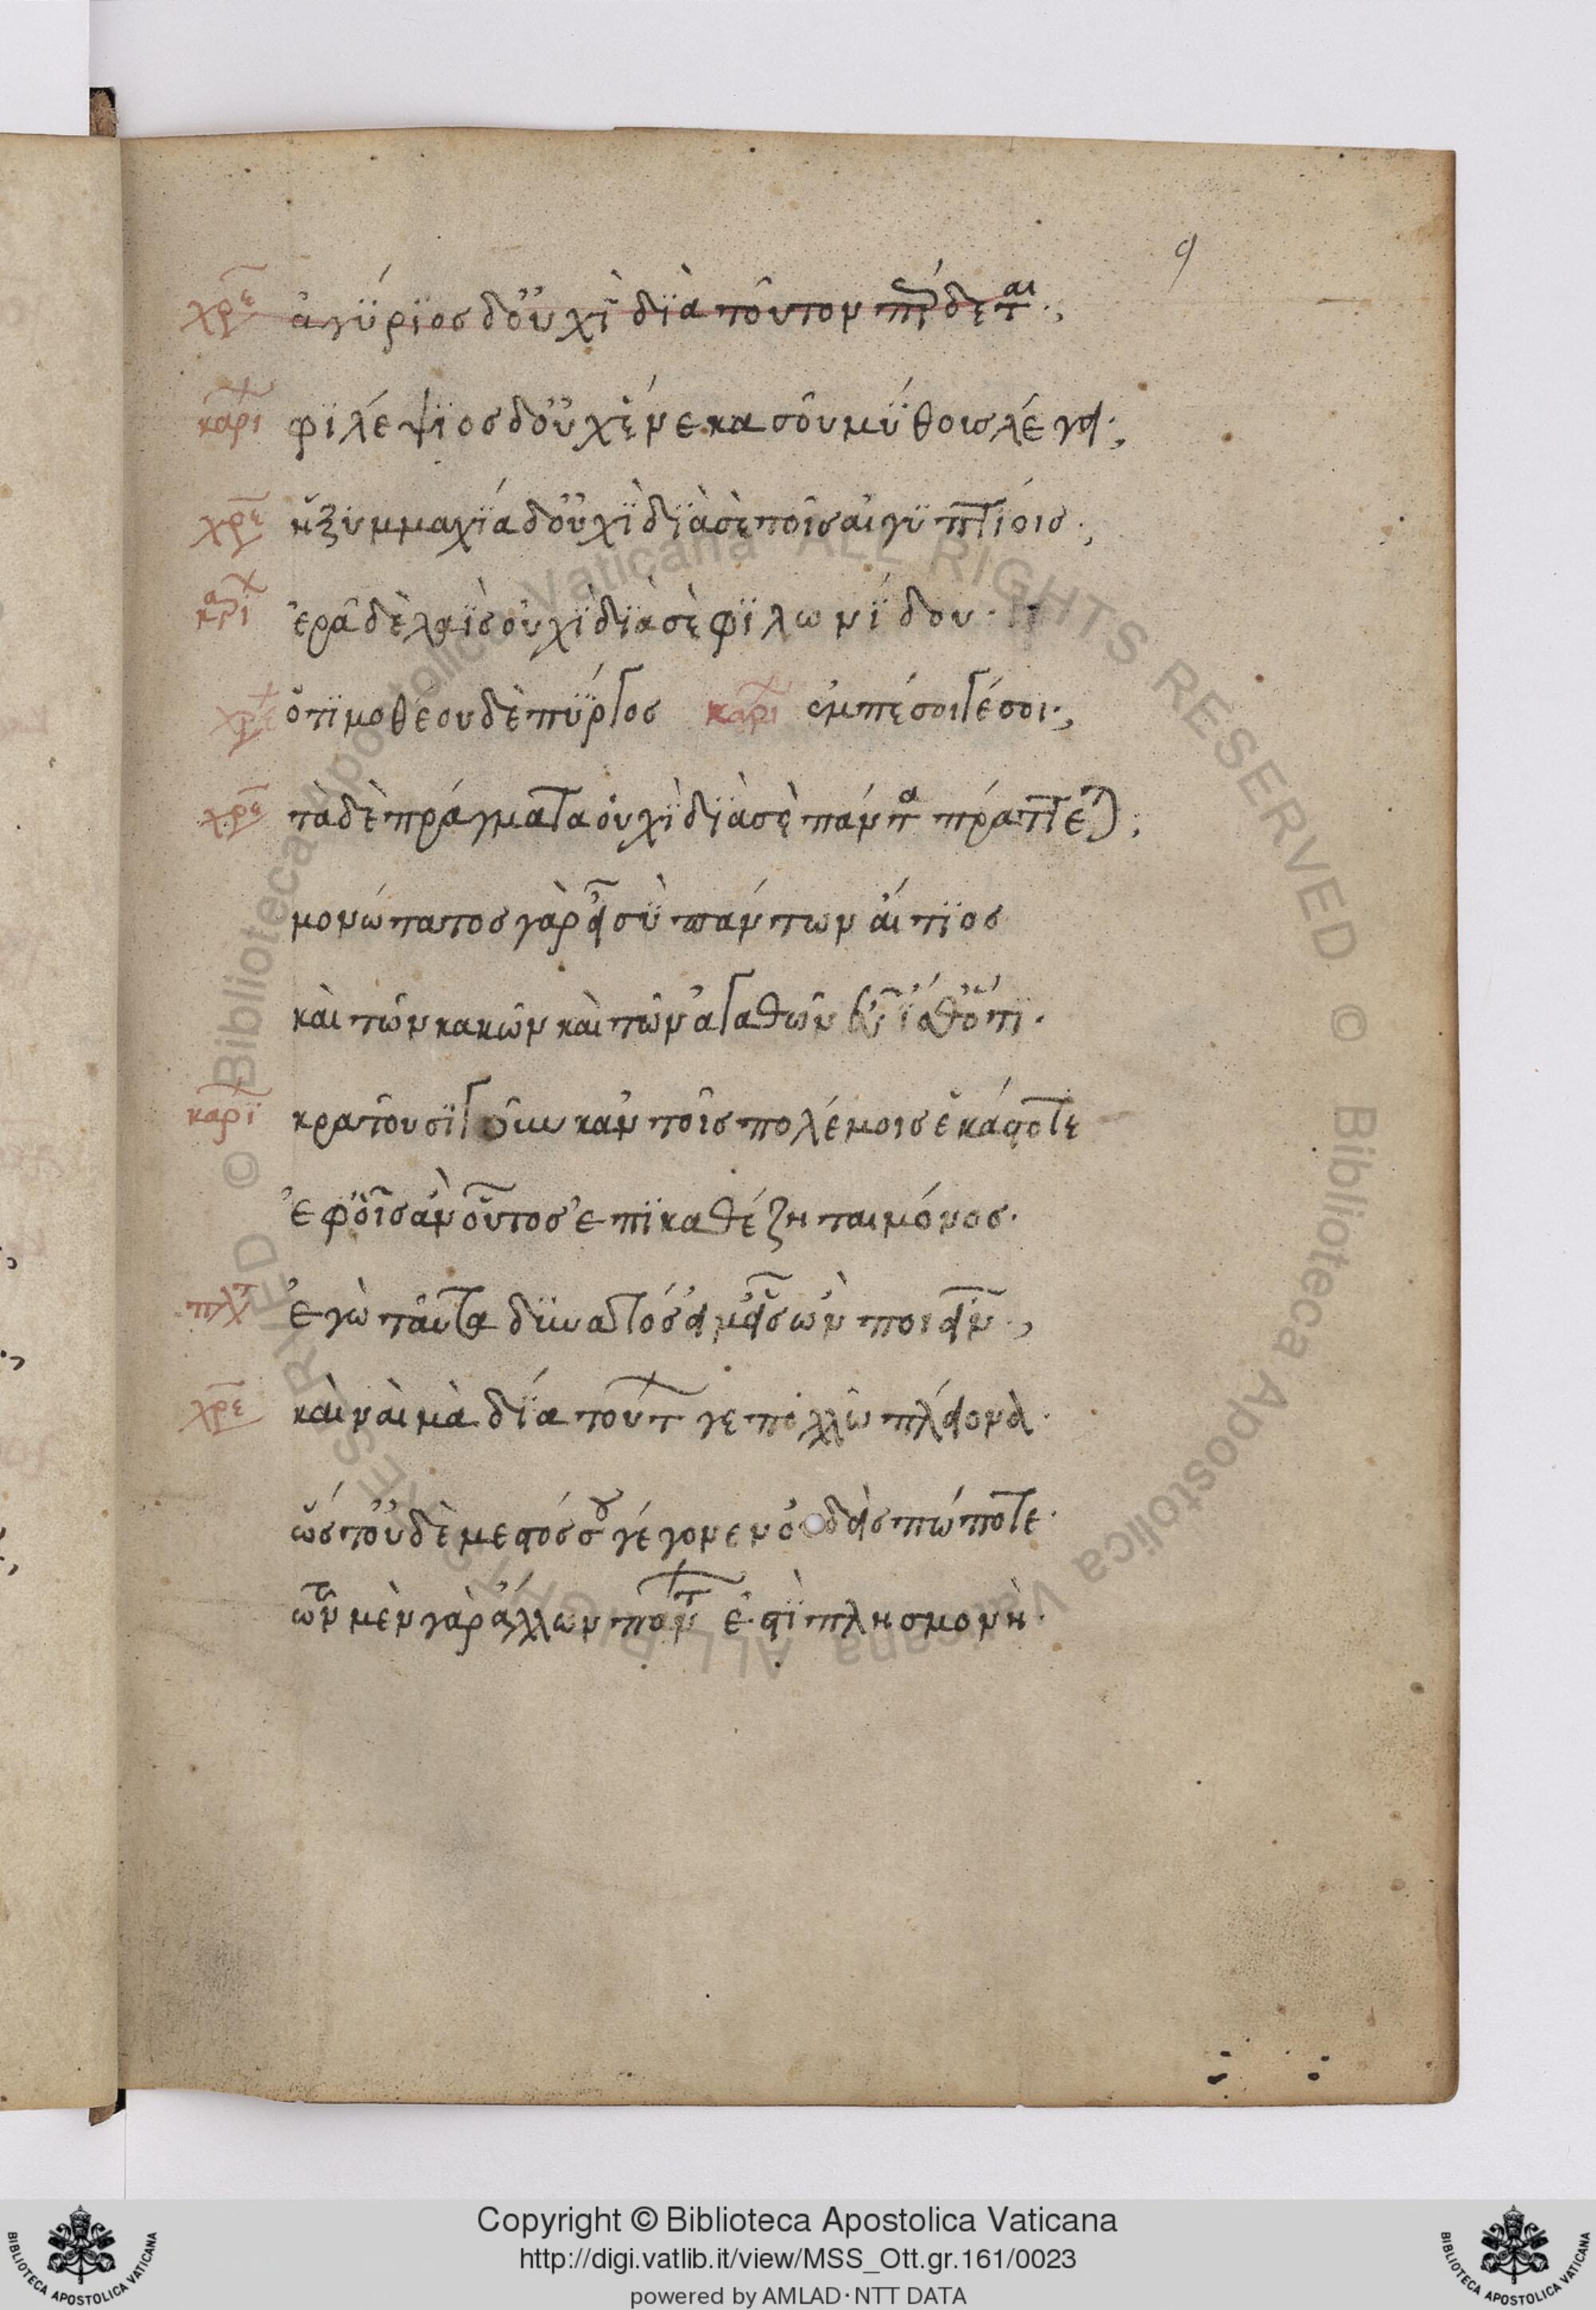 9
χρε ἀγύρϊος δ' οὐχὶ διὰ τοῦτον πέρδεται·;
καρι φϊλέψϊος δ' οὐχ ἕνεκα σοῦ μύθοις λέγει·;
χρε ἡ ξϋμμαχία δ' οὐχὶ διὰ σὲ τοῖς αἰγυπτίοις·;
καρι ἐρᾷ δὲ λαῒς οὐχὶ διὰ σὲ φϊλωνίδου·
χρε ὁ τιμοθέου δὲ πύργος καρι ἐμπέσοι γέ σοι·;
χρε τὰ δὲ πράγματα οὐχὶ διὰ σὲ πάντα πράττεται;
μονώτατος γὰρ εἶ σὺ πάντων αἴτϊος
καὶ τῶν κακῶν καὶ τῶν ἀγαθῶν εὖ ἴσθ' ὅτι·
καρϊ κρατοῦσι γοῦν κἀν τοῖς πολέμοις ἑκάστοτε
ἐφ' οἷς ἂν οὗτος ἐπικαθέζηται μόνος·
πλτ ἐγὼ ταῦτα δυνατός εἰμ' εἷς ὢν ποιεῖν·;
χρε καὶ ναὶ μὰ δία τούτων γε πολλῷ πλείονα·
ὥστ' οὐδὲ μεστὸς σοῦ γέγονεν οὐδεὶς πώποτε·
τῶν μὲν γὰρ ἄλλων πάντων ἐστὶ πλησμονὴ·
© Biblioteca Apostolica Vaticana ALL RIGHTS RESERVED © Biblioteca Apostolica Vaticana ALL RIGHTS RESERVED
Copyright © Biblioteca Apostolica Vaticana
http://digi.vatlib.it/view/MSS_Ott.gr.161/0023
powered by AMLAD·NTT DATA
BIBLIOTECA APOSTOLICA VATICANA
BIBLIOTECA APOSTOLICA VATICANA